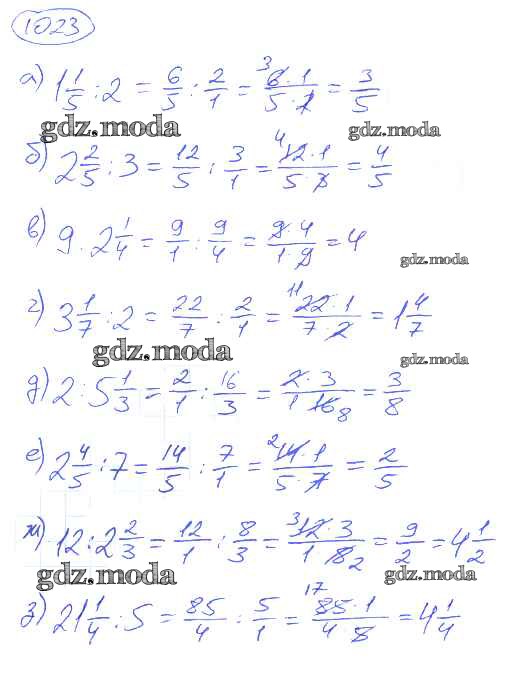 1023
а) 1 1/5 : 2 = 6/5 : 2/1 = 3 6·1/5·2 = 3/5
gdz.moda gdz.moda
б) 2 2/5 : 3 = 12/5 : 3/1 = 4 12·1/5·3 = 4/5
в) 9 · 2 1/4 = 9/1 : 9/4 = 9·4/1·9 = 4
gdz.moda
г) 3 1/7 : 2 = 22/7 : 2/1 = 11 22·1/7·2 = 1 4/7
gdz.moda gdz.moda
д) 2 · 5 1/3 = 2/1 : 16/3 = 2·3/1 16 8 = 3/8
е) 2 4/5 : 7 = 14/5 : 7/1 = 2 14·1/5·7 = 2/5
ж) 12 : 2 2/3 = 12/1 : 8/3 = 3 12·3/1 8 2 = 9/2 = 4 1/2
gdz.moda gdz.moda
з) 21 1/4 : 5 = 85/4 : 5/1 = 17 85·1/4·8 = 4 1/4